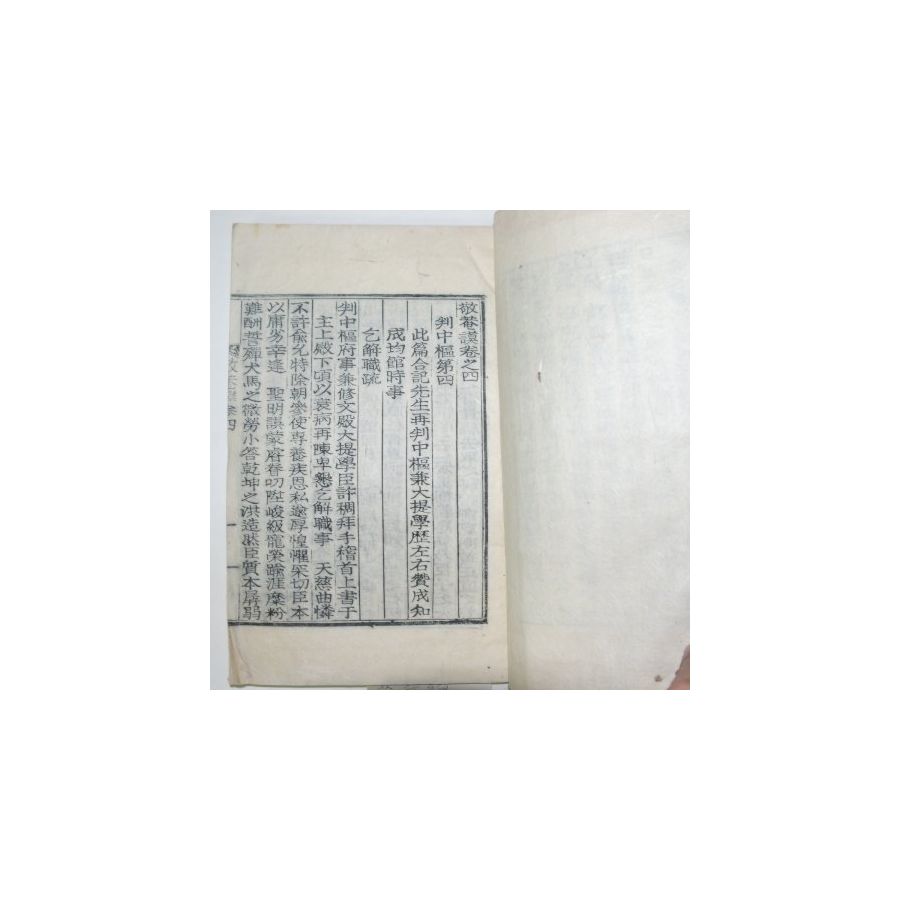 敬菴謨卷之四
判中樞第四
此篇合記先生再判中樞兼大提學歷左右贊成知
成均館時事
乞解職疏
判中樞府事兼修文殿大提學臣許稠拜手稽首上書于
主上殿下頃以衰病再陳卑懇乞解職事 天慈曲憐
不許兪允特除朝參使專養疾恩私逾厚惶懼罙切臣本
以庸劣幸逢 聖明誤蒙睿眷叨陞峻級寵榮踰涯糜粉
難酬誓殫犬馬之微勞小答乾坤之洪造然臣質本孱弱